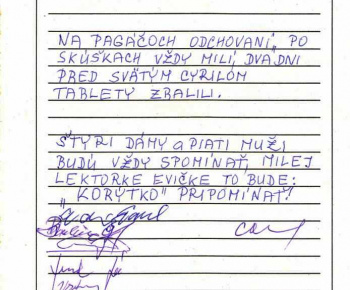 NA PAGÁČOCH ODCHOVANÍ, PO
SKÚŠKACH VŽDY MILÍ, DVA DNI
PRED SVÄTÝM CYRILOM
TABLETY ZBALILI.
ŠTYRI DÁMY a PIATI MUŽI
BUDÚ VŽDY SPOMÍNAŤ, MILEJ
LEKTORKE EVIČKE TO BUDE:
"KORÝTKO" PRIPOMÍNAŤ!